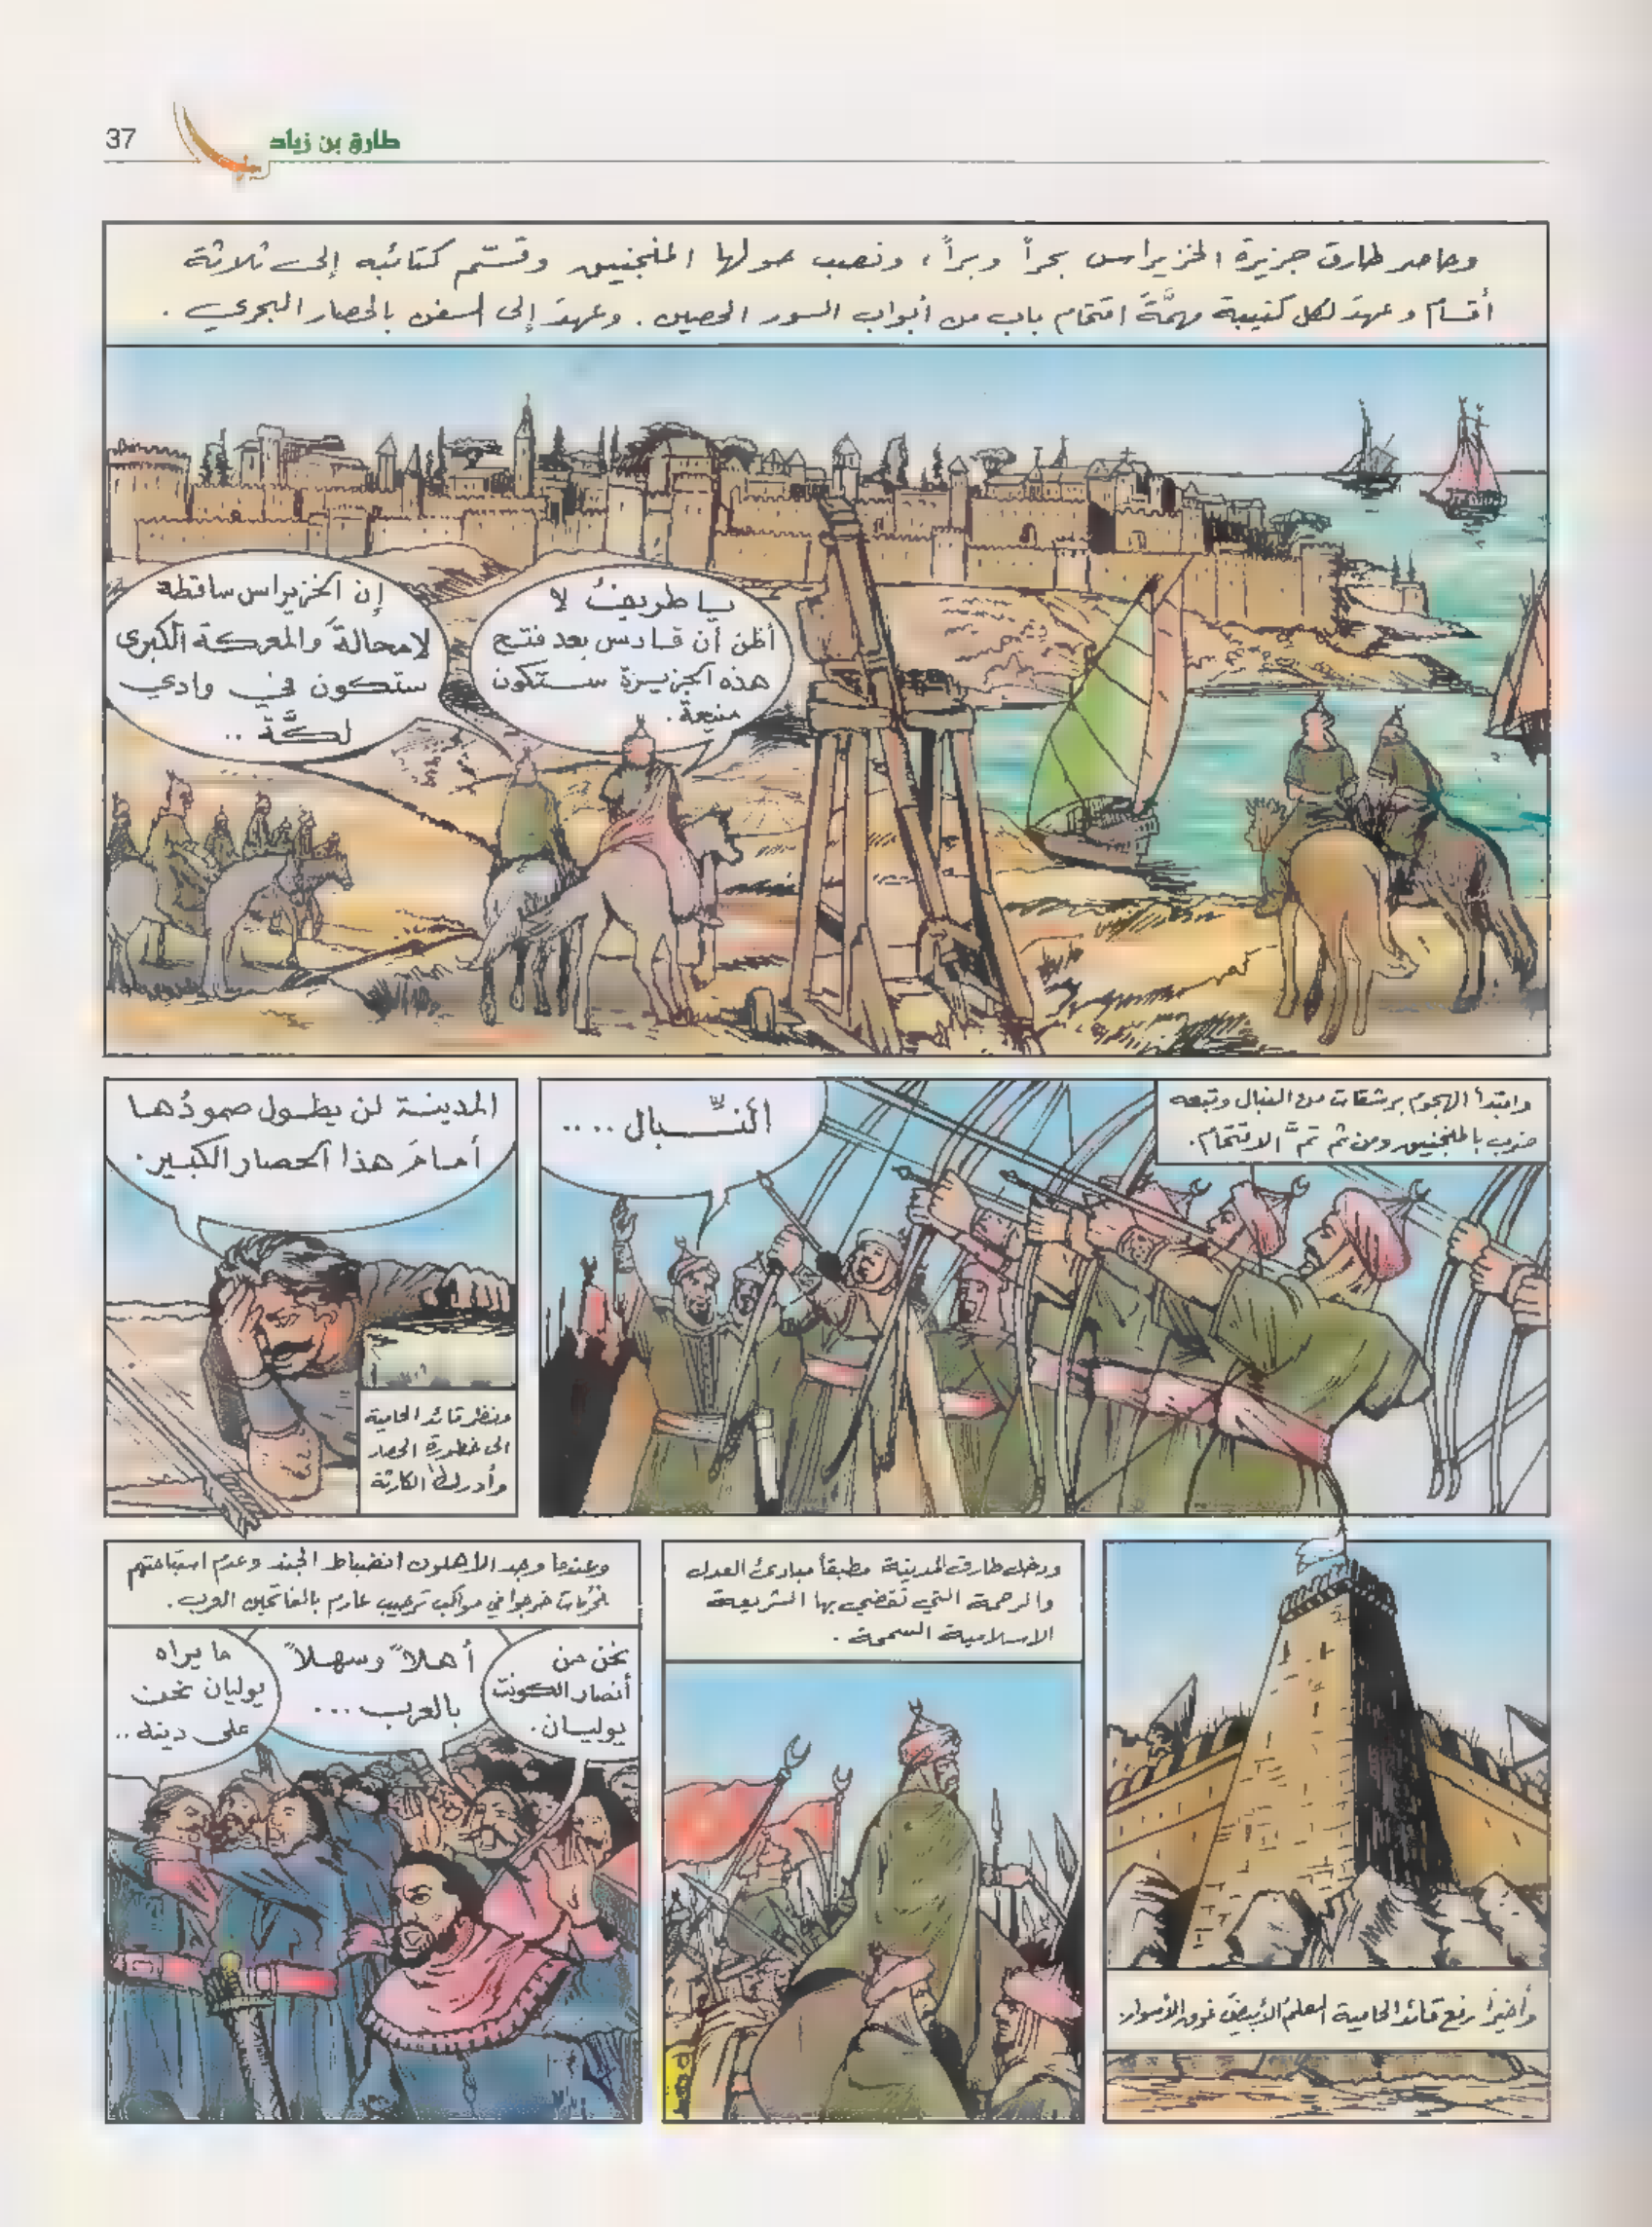 37
طارق بن زياد
وحاصر طارق جزيرة الخزيراس بحراً وبراً، ونصب حولها المنجنيق وقسّم كتائبه إلى ثلاثة
أقسام وعهدَ لكل كتيبة مهمَّةَ اقتحام باب من أبواب السور الحصين. وعهدَ إلى السفن بالحصار البحري.
يا طريفُ لا
أظن أن قادس بعد فتح
هذه الجزيرة ستكون
منيعة.
إن الخزيراس ساقطة
لا محالةَ والمعركة الكبرى
ستكون في وادي
لكَّة ..
وابتدأ الهجوم برشقات من النبال وتبعه
ضرب بالمنجنيق ومن ثم تمَّ الاقتحام.
النبِّـال ....
المدينة لن يطول صمودُها
أمامَ هذا الحصار الكبير.
ونظر قائد الحامية
الى خطورة الحصار
وأدرك الكارثة
وأخيراً رفع قائد الحامية العلمَ الأبيضَ فوق الأسوار.
ودخل طارق المدينة مطبقاً مبادئ العدل
والرحمة التي تقضي بها الشريعة
الاسلامية السمحة.
وعندما وجد الأهلون انضباط الجند وعدم استباحتهم
للحرمات خرجوا في مواكب ترحيب عارم بالفاتحين العرب.
نحن من
أنصار الكونت
يوليان.
أهلاً وسهلاً
بالعرب ...
ما يراه
يوليان نحن
على دينه ..